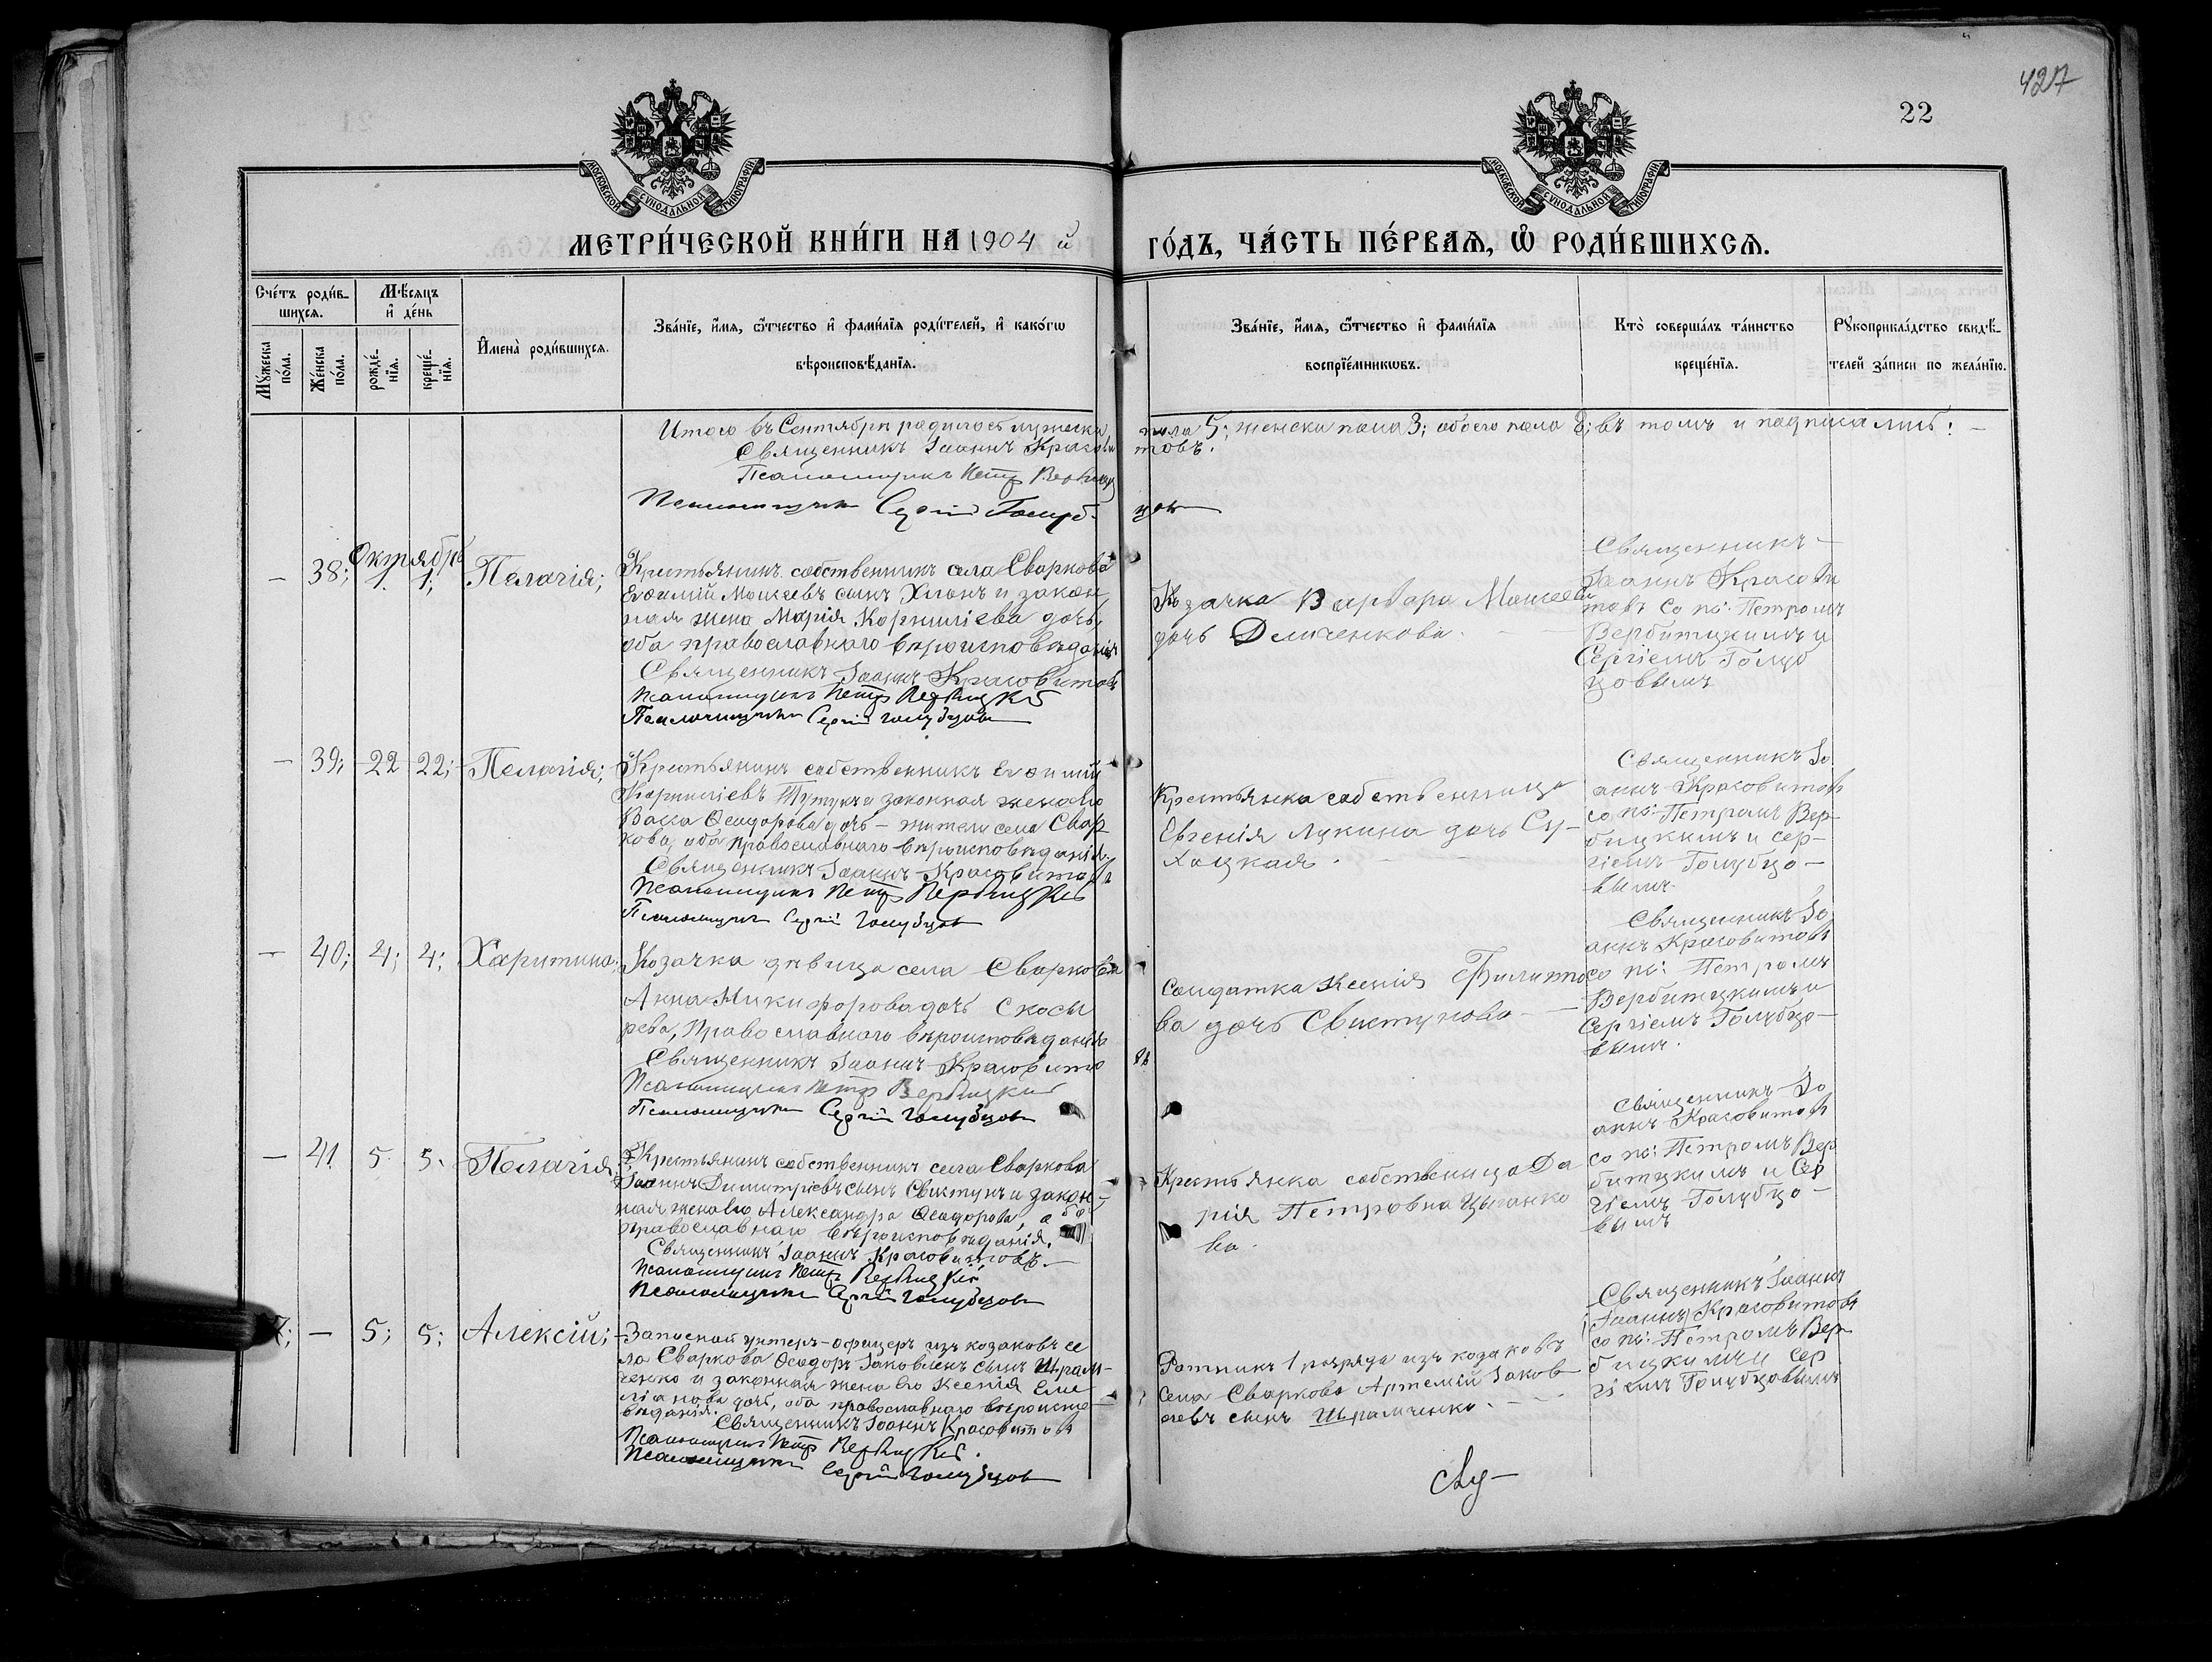 427
22
МОСКОВСКОЙ СѴНОДАЛЬНОЙ ТИПОГРАФІИ
МОСКОВСКОЙ СѴНОДАЛЬНОЙ ТИПОГРАФІИ
МЕТРИ́ЧЕСКОЙ КНИ́ГИ НА 1904 й
ГО́ДЪ, ЧА́СТЬ ПЕ́РВАЯ, Ѿ РОДИ́ВШИХСЯ.
Сче́тъ роди́в-
шихся.
Мѣ́сяцъ
и҆ де́нь
Мꙋ́жеска по́ла.
Же́нска по́ла.
рожде́-
нїя.
креще́-
нїя.
И҆мена̀ роди́вшихся.
Зва́нїе, и҆́мя, ѻ҆́тчество и҆ фами́лїя роди́телей, и҆ како́гѡ
вѣроисповѣ́данїя.
Зва́нїе, и҆́мя, ѻ҆́тчество и҆ фами́лїя
воспрїе́мникѡвъ.
Кто̀ соверша́лъ та́инство
креще́нїя.
Рꙋкоприкла́дство свидѣ́-
телей за́писи по жела́нїю.
Итого въ Сентябрѣ родилось мужеска пола 5; женска пола 3; обоего пола 8; въ томъ и подписались: —
Священникъ Іоаннъ Красовитовъ.
Псаломщикъ Петръ Вербицкій
Псаломщикъ Сергій Голубцовъ
Октябрь
— 38; 1. 1; Пелагія;
Крестьянинъ собственникъ села Сваркова
Евѳимій Моисеевъ сынъ Хланъ и закон
ная жена Марія Корниліева дочь,
оба православнаго вѣроисповѣданія
Священникъ Іоаннъ Красовитовъ
Псаломщикъ Петръ Вербицкій
Псаломщикъ Сергій Голубцовъ
Козачка Варвара Моисеева
дочь
Священникъ —
Іоаннъ Красови
товъ со пс: Петромъ
Вербитцкимъ и
Сергіемъ Голуб
цовымъ
— 39; 22 22; Пелагія;
Крестьянинъ собственникъ Евѳимій
Корниліевъ Тутукъ и законная жена его
Васса Ѳеодорова дочь — жители села Свар
кова, оба православнаго вѣроисповѣданія.
Священникъ Іоаннъ Красовитовъ
Псаломщикъ Петръ Вербицкій
Псаломщикъ Сергій Голубцовъ
Крестьянка собственница
Евгенія Лукина дочь Су-
хацкая.
Священникъ Іо
аннъ Красовитовъ
со пс: Петромъ Вер-
бицкимъ и Сер-
гіемъ Голубцо-
вымъ
— 40; 4; 4; Харитина;
Козачка дѣвица села Сваркова
Анна Никифорова дочь Скосы
рева, Православнаго вѣроисповѣданія
Священникъ Іоаннъ Красовитовъ
Псаломщикъ Петръ Вербицкій
Псаломщикъ Сергій Голубцовъ
Солдатка Ксенія Филипо
ва дочь Свистунова —
Священникъ Іо
аннъ Красовитовъ
со пс: Петромъ
Вербитцкимъ и
Сергіемъ Голубцо-
вымъ.
— 41 5. 5. Пелагія;
Крестьянинъ собственникъ села Сваркова
Іоаннъ Димитріевъ сынъ Свистунъ и закон-
ная жена его Александра Ѳеодорова, оба
православнаго вѣроисповѣданія.
Священникъ Іоаннъ Красовитовъ. —
Псаломщикъ Петръ Вербицкій
Псаломщикъ Сергій Голубцовъ
Крестьянка собственица Да
рія Петровна Цыганко
ва.
Священникъ Іо
аннъ Красовитовъ
со пс: Петромъ Вер
битцкимъ и Сер
гіемъ Голубцо-
вымъ
7; — 5; 5; Алексій;
Запасной унтеръ-офицеръ изъ козаковъ се
ла Сваркова Ѳеодоръ Іаковлевъ сынъ Шрам-
ченко и законная жена его Ксенія Еми
ліанова дочь, оба православнаго вѣроиспо-
вѣданія.
Священникъ Іоаннъ Красовитовъ
Псаломщикъ Петръ Вербицкій.
Псаломщикъ Сергій Голубцовъ
Ратникъ 1 разряда изъ козаковъ
села Сваркова Артемій Іаков
левъ сынъ Шрамченко. —
Священникъ Іоаннъ
Іоаннъ Красовитовъ
со пс: Петромъ Вер
бицкимъ и Сер
гіемъ Голубцовымъ